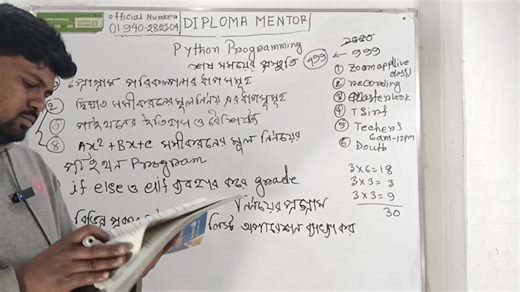 official Number
01940-282304
DIPLOMA MENTOR
Python Programming
শেষ সময়ের প্রস্তুতি
499 ← 999
প্রোগ্রাম পরিকল্পনার ধাপসমূহ
2 দ্বিঘাত সমীকরনের মূল নির্ণয় এর ধাপসমূহ
পাইথনের ইতিহাস ও বৈশিষ্ট্য
8 Ax²+Bx+c সমীকরনের মূল নির্ণয়ের
পাইথন Program
if else ও elif ব্যবহার করে grade
নির্ণয়ের প্রোগ্রাম
লিস্ট অপারেশন ব্যাখ্যা কর
1 Zoom app live
class)
2 recording
3
4
5 Teacher 3
6am-12pm
6 Doubt
3×6=18
3×3=
3×3=9
30